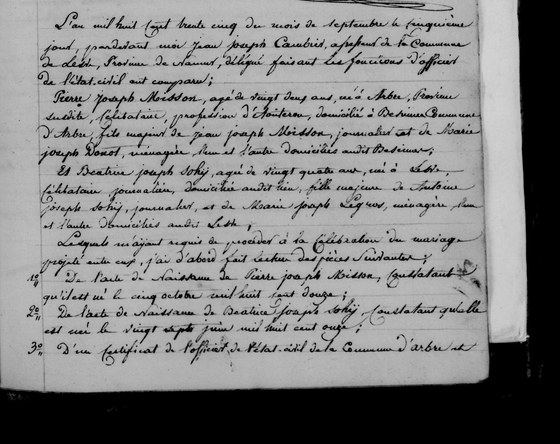 L'an mil huit cent trente cinq du mois de septembre le cinquième
jour, pardevant moi Jean Joseph assesseur de la Commune
de Lesve, Province de Namur, délégué faisant les fonctions d'officier
de l'état-civil ont comparu;
Pierre Joseph Moisson, agé de vingt deux ans, né à Arbre, Province
susdite, Célibataire, profession d', domicilié à Besinne Commune
d'Arbre, fils majeur de Jean Joseph Moisson, journalier et de Marie
Joseph Donot, ménagère l'un et l'autre domiciliés audit Besinne;
Et Beatrice Joseph Sohij, agée de vingt quatre ans, né à Lesve,
Célibataire journalière, domiciliée audit lieu, fille majeure de Antoine
Joseph Sohij, journalier, et de Marie Joseph Legros, ménagère l'un
et l'autre domiciliés audit Lesve;
Lesquels m'aijant requis de procéder à la Célébration du mariage
projeté entre eux, j'ai d'abord fait lecture des pièces suivantes;
1° De l'acte de Naissance de Pierre Joseph Moisson, Constatant
qu'il est né le cinq octobre mil huit cent douze;
2° De l'acte de Naissance de Beatrice Joseph Sohij, Constatant qu'elle
est née le vingt sept juin mil huit cent onze;
3° D'un Certificat de l'officier de l'état-civil de la Commune d'arbre et